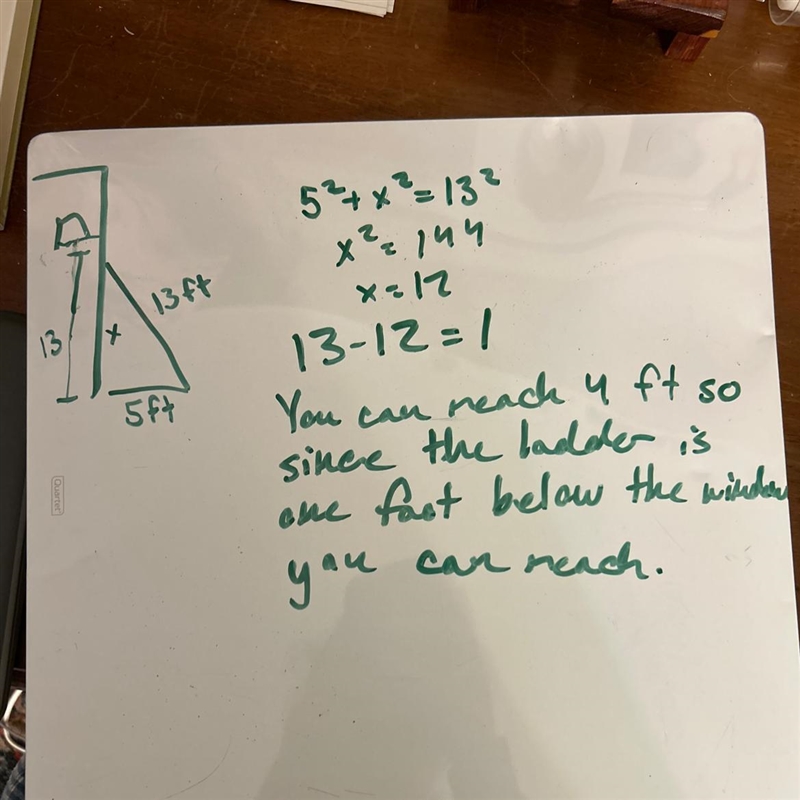 5² + x² = 13²
x² = 144
x = 12
13 - 12 = 1
You can reach 4 ft so
since the ladder is
one foot below the window
you can reach.
13 ft
13
x
5 ft
Quartet